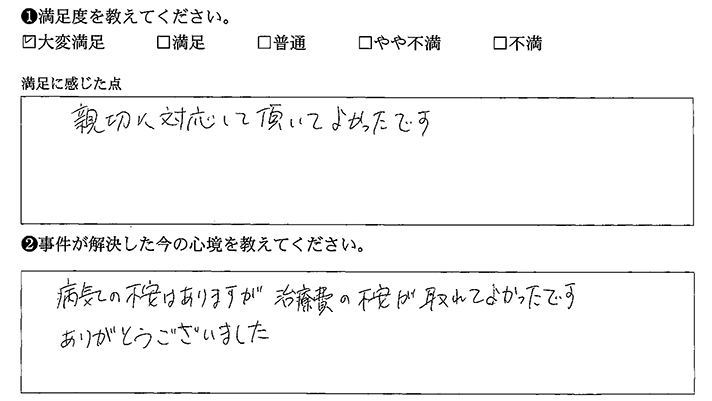 ❶満足度を教えてください。
☑大変満足 □満足 □普通 □やや不満 □不満
満足に感じた点
親切に対応して頂いてよかったです
❷事件が解決した今の心境を教えてください。
病気の不安はありますが 治療費の不安が取れてよかったです
ありがとうございました